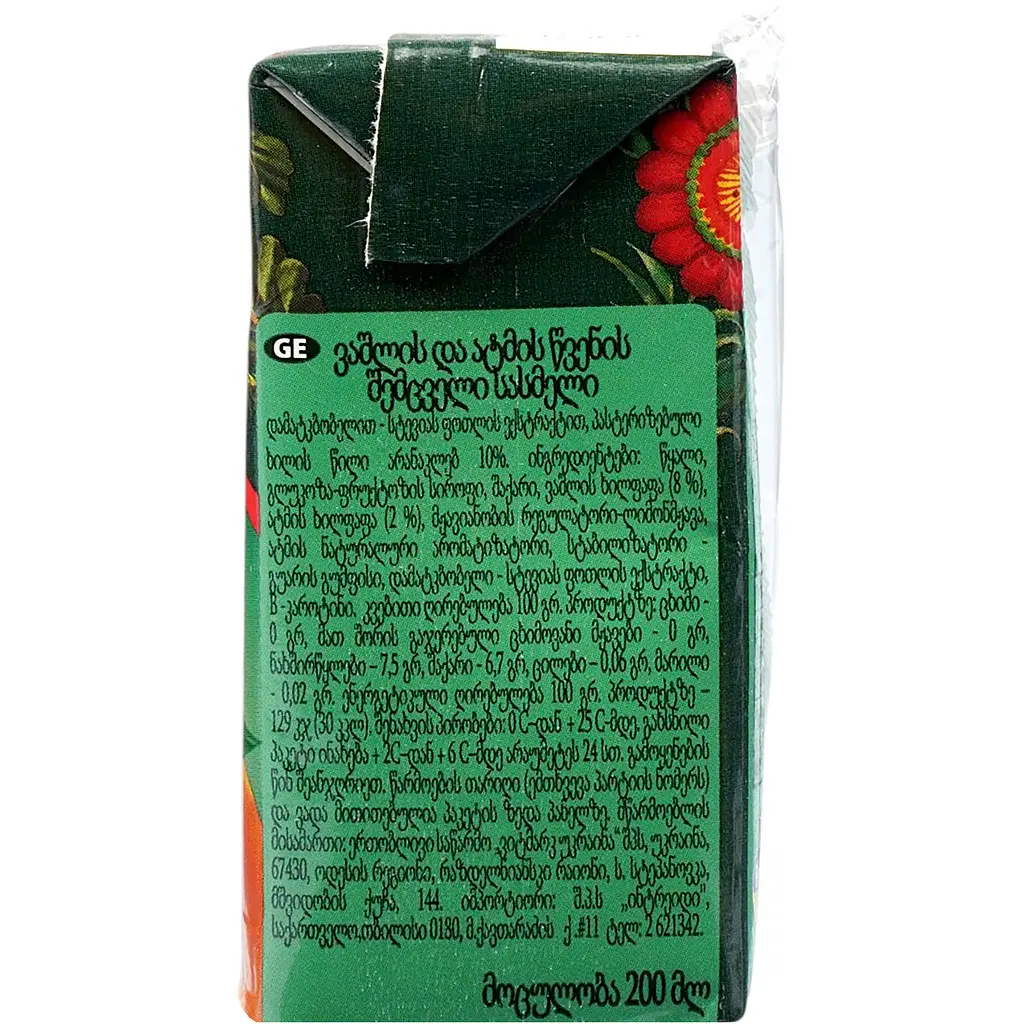 GE ვაშლის და ატმის წვენის
შემცველი სასმელი
დამატკბობელით - სტევიას ფოთლის ექსტრაქტით, პასტერიზებული
ხილის წილი არანაკლებ 10%. ინგრედიენტები: წყალი,
გლუკოზა-ფრუქტოზის სიროფი, შაქარი, ვაშლის ხილფაფა (8 %),
ატმის ხილფაფა (2 %), მჟავიანობის რეგულატორი-ლიმონმჟავა,
ატმის ნატურალური არომატიზატორი, სტაბილიზატორი -
გუარის გუმფისი, დამატკბობელი - სტევიას ფოთლის ექსტრაქტი,
B -კაროტინი. კვებითი ღირებულება 100 გრ. პროდუქტზე: ცხიმი -
0 გრ, მათ შორის გაჯერებული ცხიმოვანი მჟავები - 0 გრ,
ნახშირწყლები – 7,5 გრ, შაქარი - 6,7 გრ, ცილები – 0,06 გრ, მარილი
- 0,02 გრ. ენერგეტიკული ღირებულება 100 გრ. პროდუქტზე –
129 კჯ (30 კკლ). შენახვის პირობები: 0 C-დან + 25 C-მდე. გახსნილი
პაკეტი ინახება + 2C-დან + 6 C-მდე არაუმეტეს 24 სთ. გამოყენების
წინ შეანჯღრიეთ. წარმოების თარიღი (ემთხვევა პარტიის ნომერს)
და ვადა მითითებულია პაკეტის ზედა პანელზე. მწარმოებლის
მისამართი: ერთობლივი საწარმო „ვიტმარკ უკრაინა" შპს, უკრაინა,
67430, ოდესის რეგიონი, რაზდელნიანსკი რაიონი, ს. სტეპანოვკა,
მშვიდობის ქუჩა, 144. იმპორტიორი: შ.პ.ს „ინტრეიდი",
საქართველო,თბილისი 0180, მ.ქავთარაძის ქ .#11 ტელ: 2 621342.
მოცულობა 200 მლ